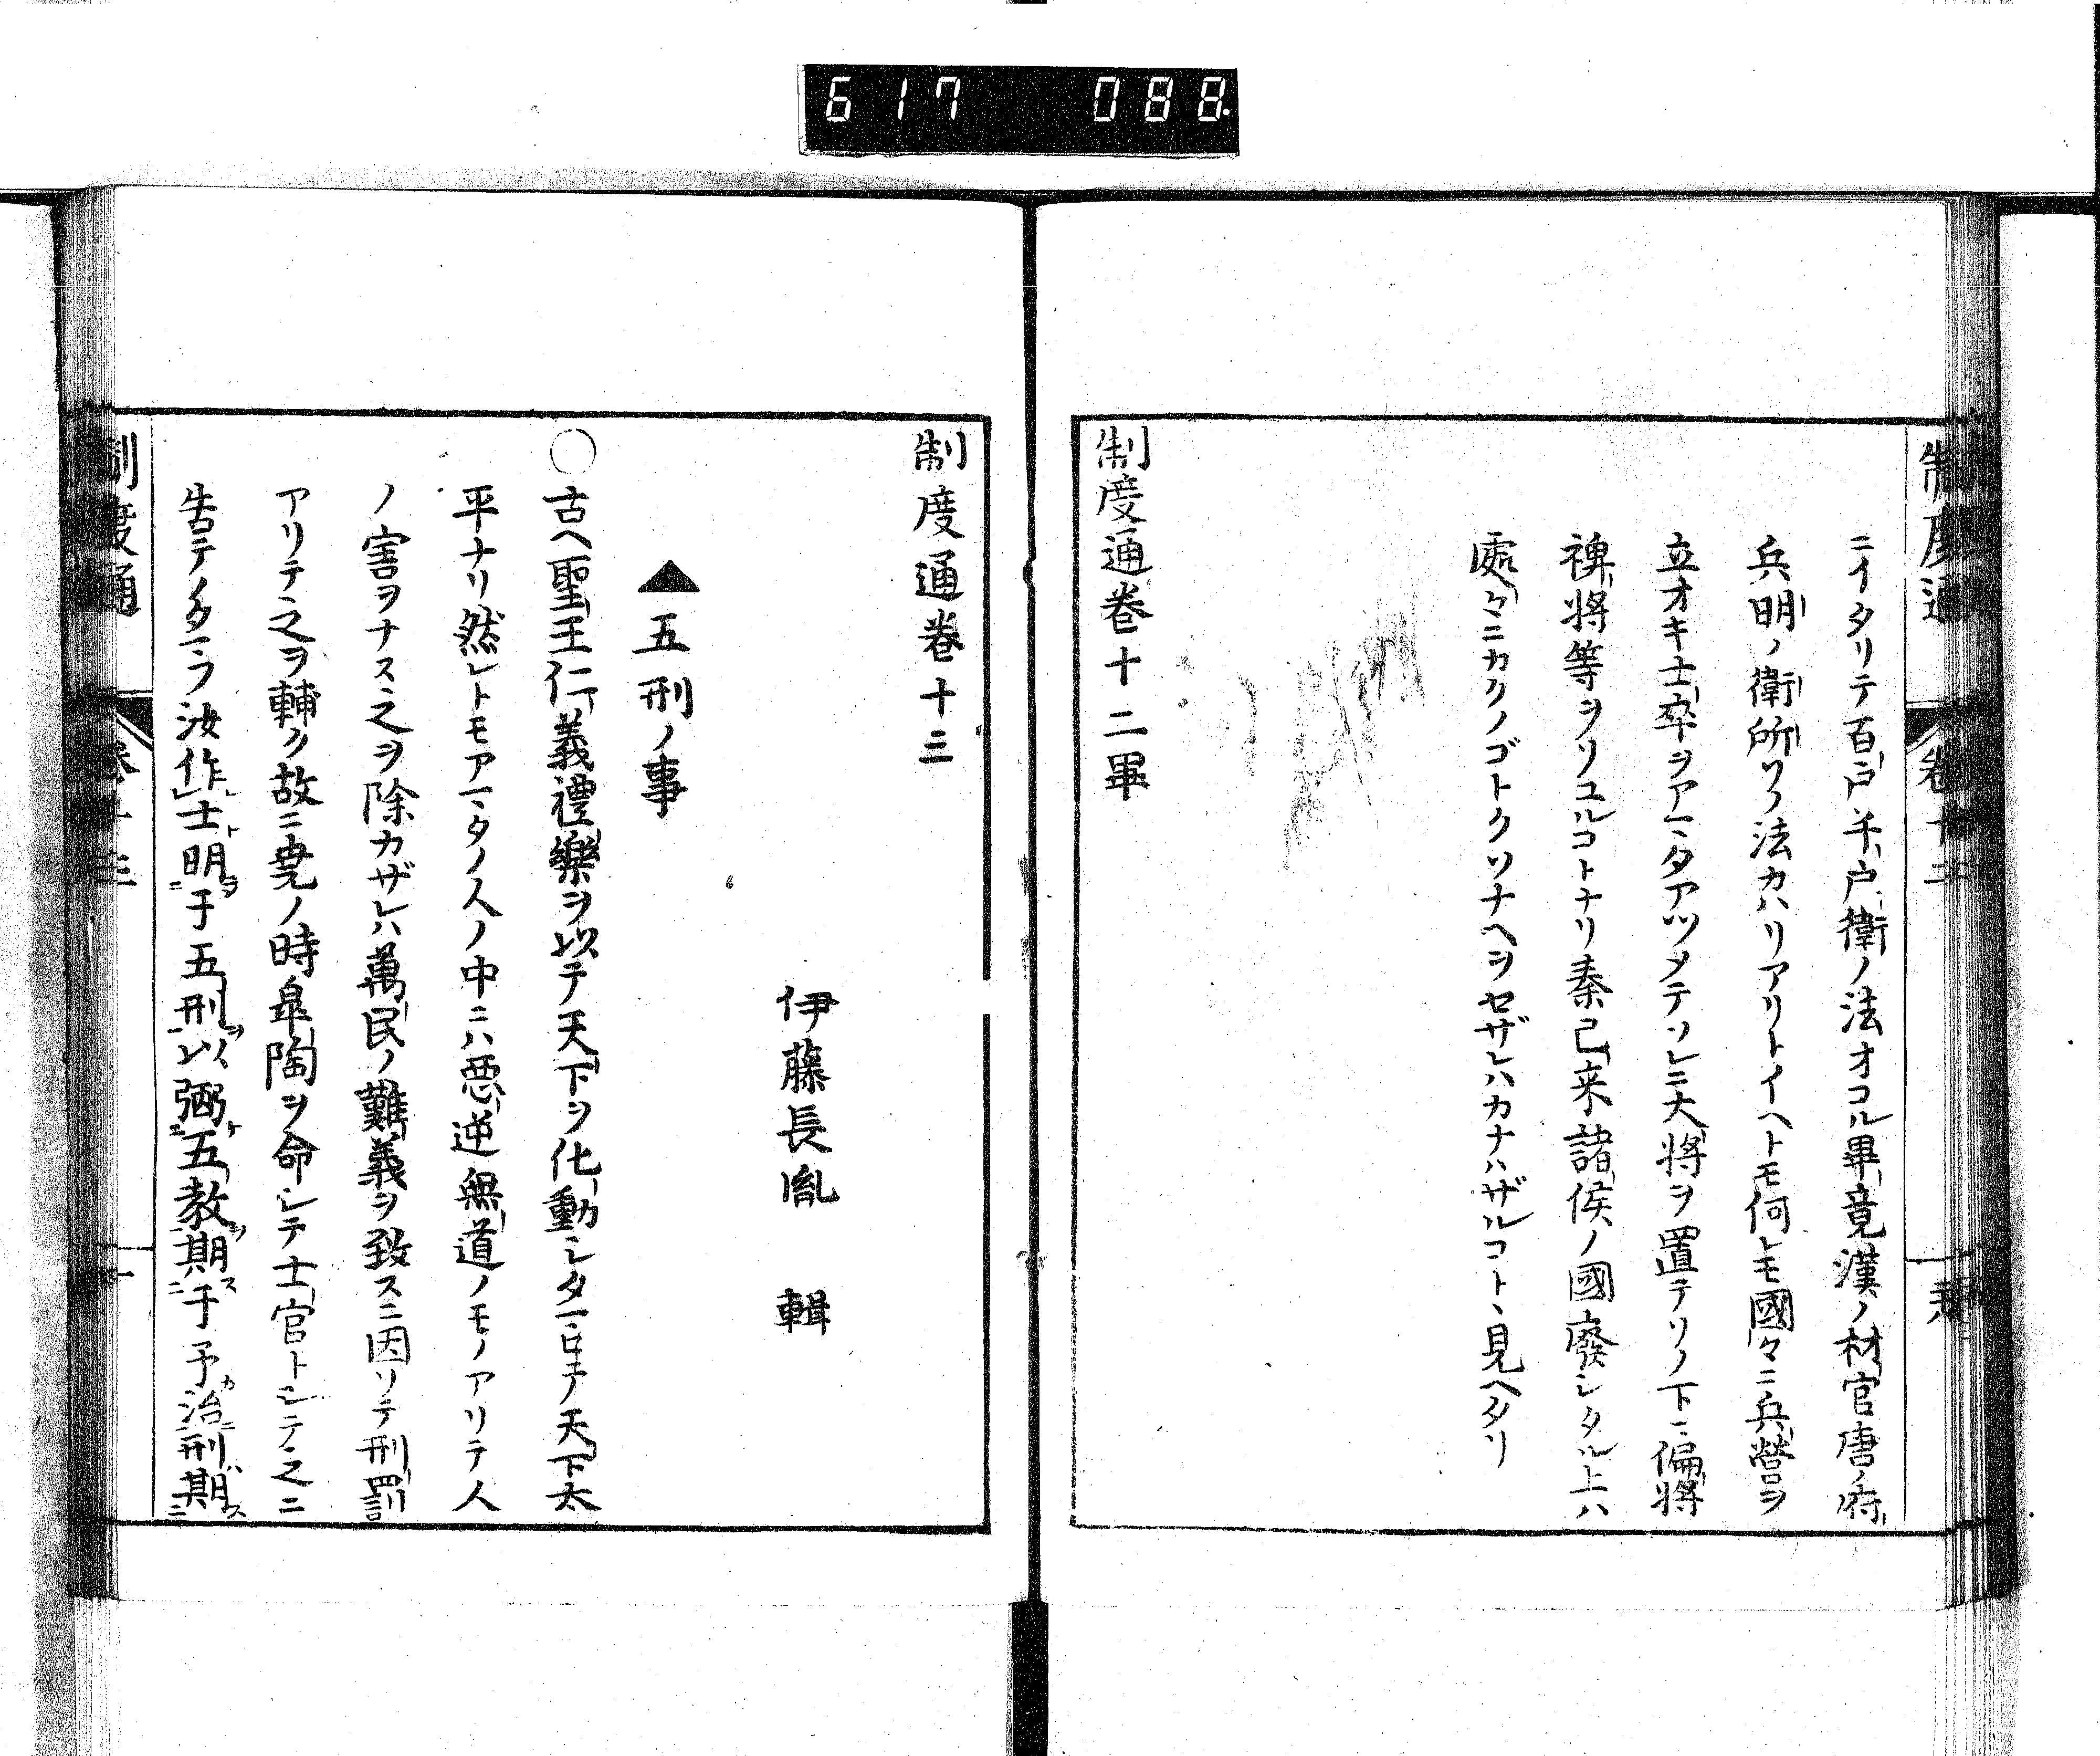 617 088
制度通 卷十二
ニイタリテ百戸千戸衛ノ法オコル畢竟漢ノ材官唐ノ府
兵明ノ衛所ソノ法カハリアリトイヘトモ何レモ國々ニ兵營ヲ
立オキ士卒ヲアマタアツメテソレニ大將ヲ置テソノ下ニ偏將
裨將等ヲソユルコトナリ秦已来諸侯ノ國廢シタル上ハ
處々ニカクノゴトクソナヘヲセザレハカナハザルコトヽ見ヘタリ
制度通卷十二畢
制度通卷十三
伊藤長胤 輯
▲五刑ノ事
○古ヘ聖王仁義禮樂ヲ以テ天下ヲ化動シタマヒテ天下太
平ナリ然レトモアマタノ人ノ中ニハ惡逆無道ノモノアリテ人
ノ害ヲナス之ヲ除カザレハ萬民ノ難義ヲ致スニ因リテ刑罰
アリテ之ヲ輔ク故ニ堯ノ時皐陶ヲ命シテ士官トシテ之ニ
告テノタマフ汝作士明于五刑以弼五教期于予治刑期
制度通 卷十三 一